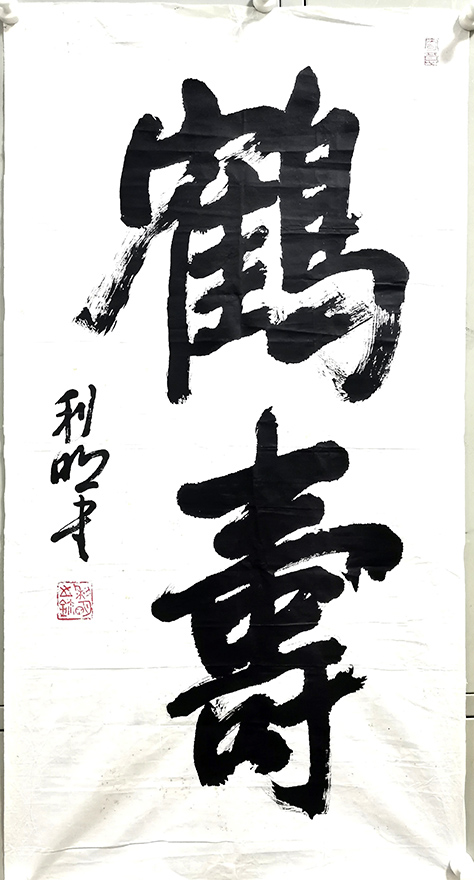 鶴壽
利明书